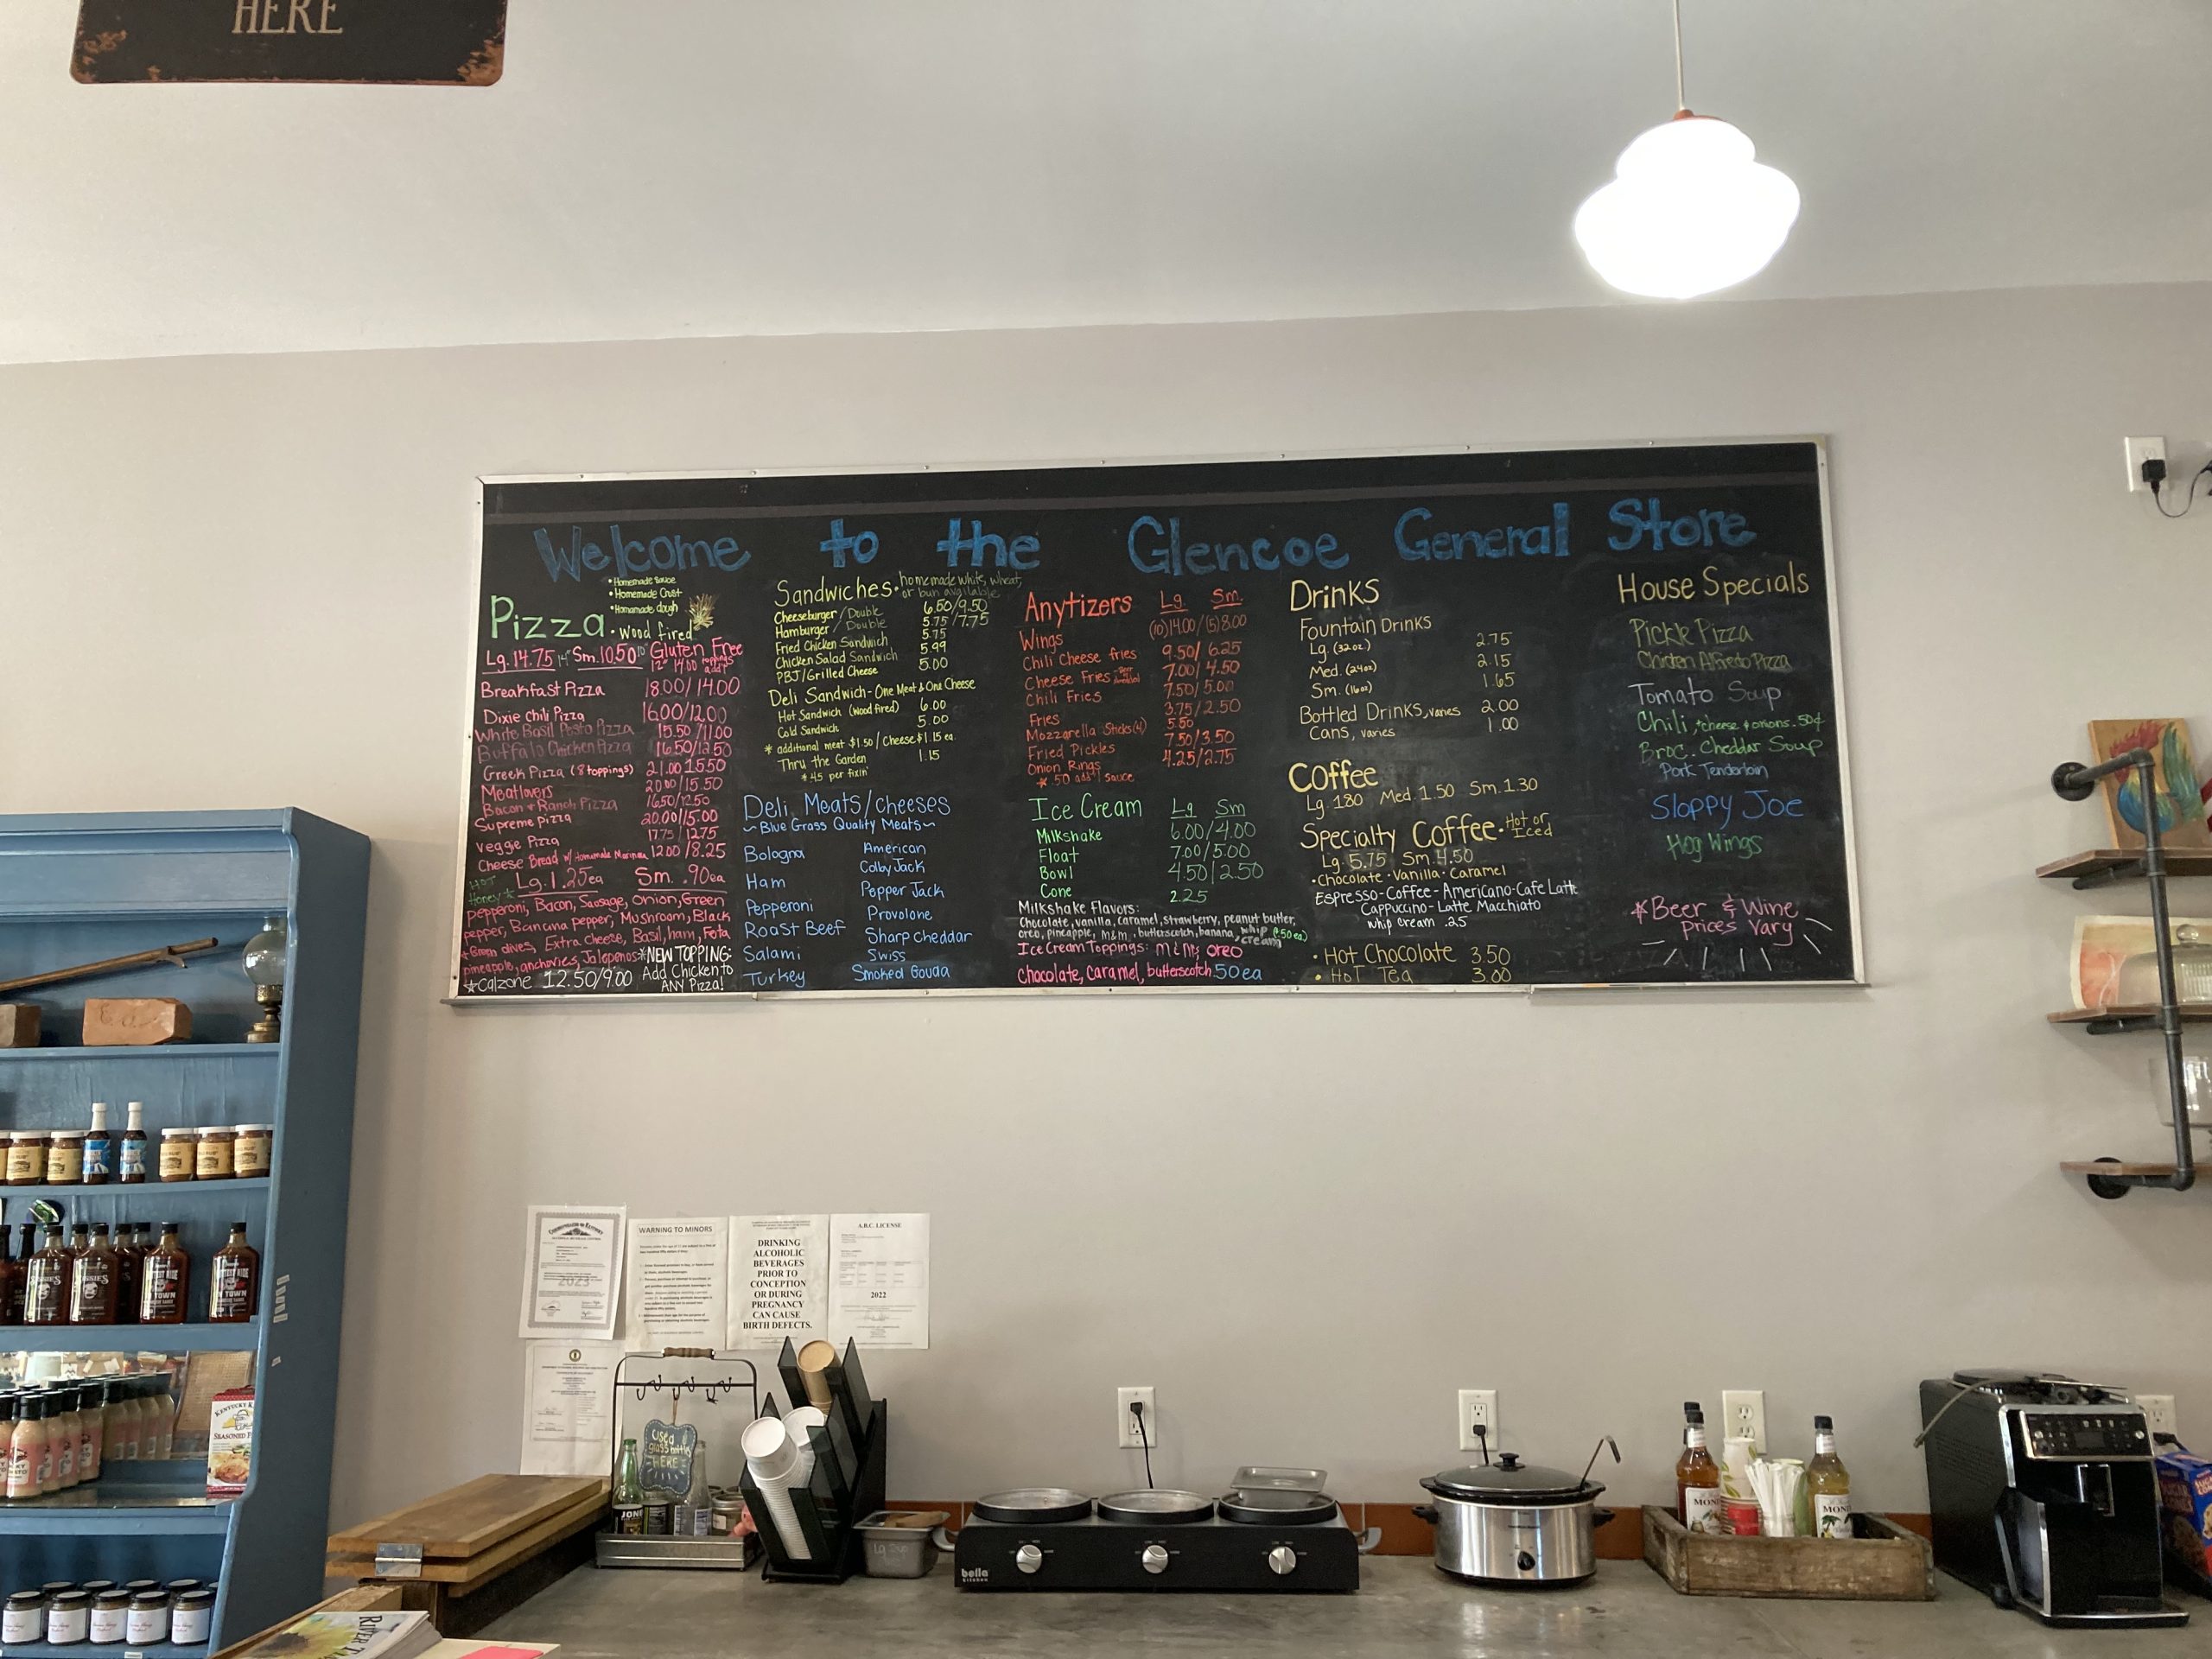 HERE
Welcome to the Glencoe General Store
Pizza
• Homemade Sauce
• Homemade Crust
• Homemade dough
• Wood fired
Lg. 14.75 14" Sm. 10.50 10" Gluten Free
12" 14.00
Breakfast Pizza 18.00/14.00
Dixie Chili Pizza 16.00/12.00
White Basil Pesto Pizza 15.50/11.00
Buffalo Chicken Pizza 16.50/12.50
Greek Pizza (8 toppings) 21.00 15.50
Meatlovers 20.00/15.50
Bacon & Ranch Pizza 16.50/12.50
Supreme Pizza 20.00/15.00
Veggie Pizza 17.75/12.75
Cheese Bread w/ Homemade Marinara 12.00/8.25
HOT Honey*
Lg. 1.25ea Sm. .90ea
Pepperoni, Bacon, Sausage, Onion, Green
pepper, Banana pepper, Mushroom, Black
* Green olives, Extra Cheese, Basil, ham, Feta
pineapple, anchovies, Jalapenos
*NEW TOPPING:
Add Chicken to
ANY Pizza!
*Calzone 12.50/9.00
Sandwiches • homemade white, wheat,
or bun available
Cheeseburger / Double 6.50/9.50
Hamburger / Double 5.75/7.75
Fried Chicken Sandwich 5.75
Chicken Salad Sandwich 5.99
PBJ/Grilled Cheese 5.00
Deli Sandwich - One Meat & One Cheese
Hot Sandwich (wood fired) 6.00
Cold Sandwich 5.00
* additional meat $1.50 / Cheese $1.15 ea.
Thru the Garden 1.15
* .45 per fixin'
Deli Meats/cheeses
~Blue Grass Quality Meats~
Bologna American
Ham Colby Jack
Pepperoni Pepper Jack
Roast Beef Provolone
Salami Sharp Cheddar
Turkey Swiss
Smoked Gouda
Anytizers Lg. Sm.
Wings (10)14.00/(5)8.00
Chili Cheese fries 9.50/6.25
Cheese Fries 7.00/4.50
Chili Fries 7.50/5.00
Fries 3.75/2.50
Mozzarella Sticks(4) 5.50
Fried Pickles 7.50/3.50
Onion Rings 4.25/2.75
* .50 add'l sauce
Ice Cream Lg Sm
Milkshake 6.00/4.00
Float 7.00/5.00
Bowl 4.50/2.50
Cone 2.25
Milkshake Flavors:
Chocolate, vanilla, caramel, strawberry, peanut butter,
oreo, pineapple, m&m, butterscotch, banana, whip cream (.50 ea)
Ice Cream Toppings: m&m, oreo
Chocolate, Caramel, butterscotch .50 ea
Drinks
Fountain Drinks
Lg. (32oz.) 2.75
Med. (24oz) 2.15
Sm. (16oz) 1.65
Bottled Drinks, varies 2.00
Cans, varies 1.00
Coffee
Lg. 1.80 Med. 1.50 Sm. 1.30
Specialty Coffee • Hot or Iced
Lg. 5.75 Sm. 4.50
• Chocolate • Vanilla • Caramel
Espresso - Coffee - Americano - Cafe Latte
Cappuccino - Latte Macchiato
whip cream .25
• Hot Chocolate 3.50
• Hot Tea 3.00
House Specials
Pickle Pizza
Chicken Alfredo Pizza
Tomato Soup
Chili, *cheese & onions .50¢
Broc. Cheddar Soup
Pork Tenderloin
Sloppy Joe
Hog Wings
*Beer & Wine
prices vary
2023
WARNING TO MINORS
DRINKING
ALCOHOLIC
BEVERAGES
PRIOR TO
CONCEPTION
OR DURING
PREGNANCY
CAN CAUSE
BIRTH DEFECTS.
A.B.C. LICENSE
2022
Used
glass bottles
HERE
JONE
Lg Cup
bella
KITCHEN
MONI
MONI
KENTUCKY K
SEASONED F
TOWN
TOWN
RIVER